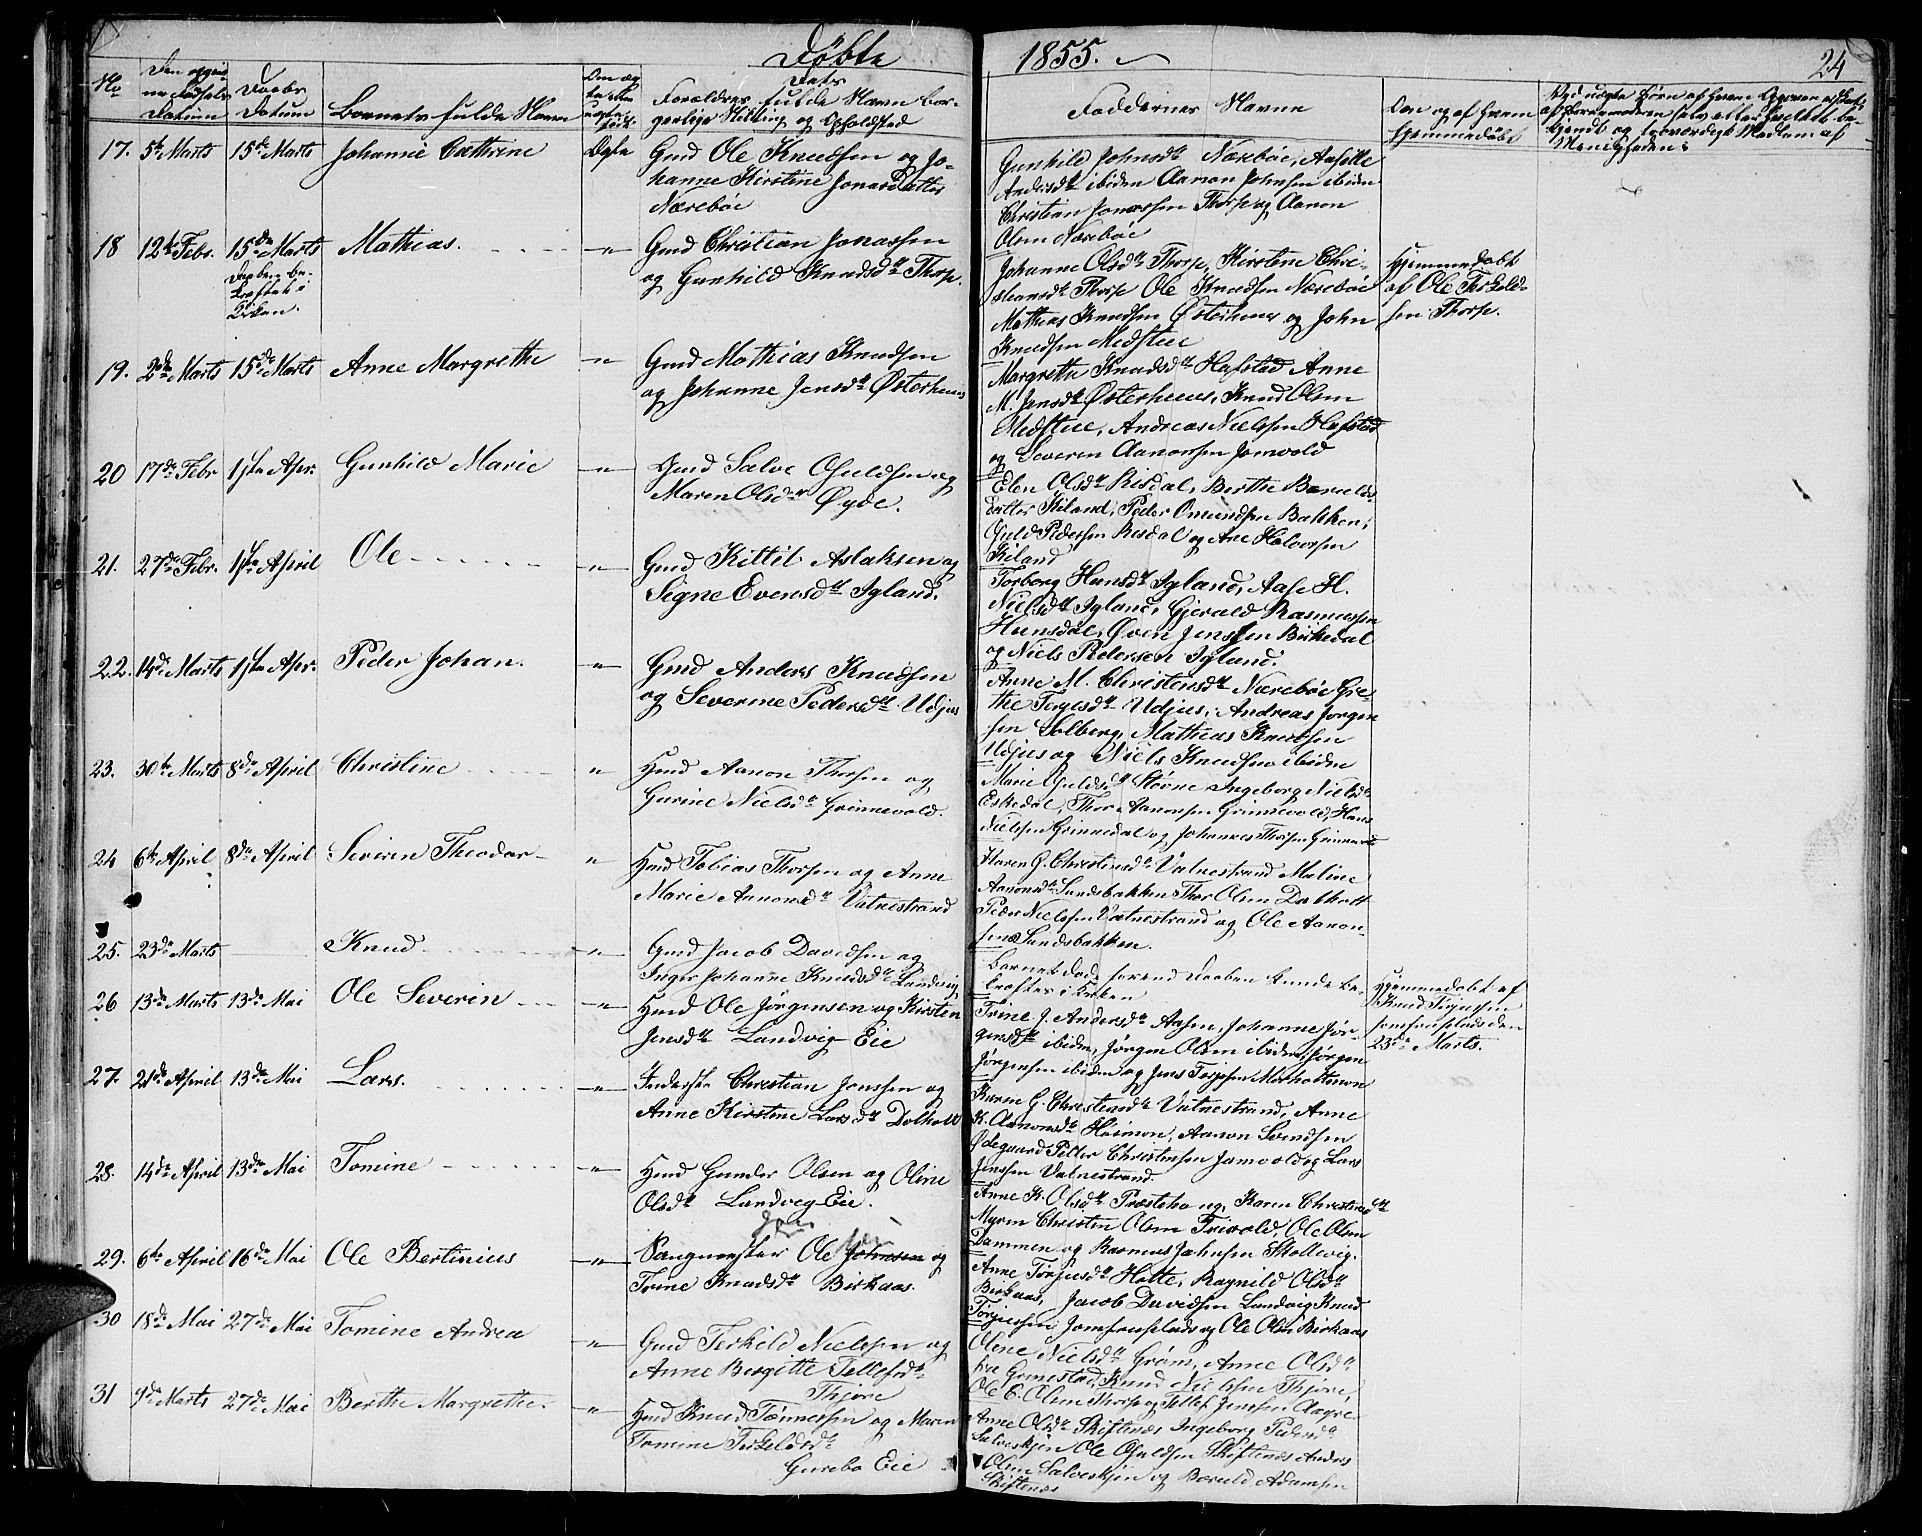 Døbte 1855. 24
No
Den opgiv-
ne Fødsels
Datum
Daabs
Datum
Barnets fulde Navn
Den æg-
te eller
uægte
født.
Forældres fulde Navn Dets bor-
gerlige Stilling og Opholdsted
Faddernes Navne
Om og af Hvem
Hjemmedøbt
17. 5te Marts 15de Marts Johanne Cathrine Ægte Gmd Ole Knudsen og Jo-
hanne Kirstine Jonasdatter
Nærebøe
Gunhild Johnsdtr Nærebøe, Aasille
Andersdtr ibiden Aanon Johnsen ibiden
Christian Jonassen Thorp og Aanon
Olsen Nærebøe
18 12te Febr. 15de Marts Mathias. " Gmd Christian Jonassen
Daaben be-
kræftet i
Kirken.
og Gunhild Knudsdtr Thorp.
Johanne Olsdtr Thorp, Kirstine Chri-
stiansdtr Thorp Ole Knudsen Nærebøe
Mathias Knudsen Østerhuus og John
Knudsen Midstue
Hjemmedøbt
af Ole Terkeld-
sen Thorp.
19. 2den Marts 15de Marts Anne Margrethe " Gmd Mathias Knudsen
og Johanne Jensdtr Østerhuus
Margrethe Knudsdtr Hafstad Anne
M. Jensdtr Østerhuus, Knud Olsen
Midstue, Andreas Nielssen Hafstad
og Severin Aanonsen Jomvold
20 17de Febr 1ste Apr. Gunhild Marie " Gmd Salve Ofuldsen og
Maren Olsdtr Øyde.
Elen Olsdtr Risdal, Berthe Baruulds-
datter Kiland, Peder Omundsen Bakken,
Gjuld Pedersen Risdal og Ane Halvorsen
Kiland
21. 27de Febr. 1ste April Ole " Gmd Kittil Aslaksen og
Signe Evensdtr Igland.
Torborg Hansdtr Igland, Aase H.
Nielsdtr Igland, Gjerald Rasmussen
Hunsdal, Øven Jenssen Birkedal
og Niels Pedersen Igland.
22. 14de Marts 1ste Apr. Peder Johan. " Gmd Anders Knudsen
og Severine Pedersdtr Udjus
Anne M. Christensdtr Nærebøe Gre-
the Terjesdtr Udjus, Andreas Jørgen-
sen Solberg, Mathias Knudsen
Udjus og Niels Knudsen ibiden
23. 30te Marts 8de April Christine " Hmd Aanon Thorsen og
Gurine Nielsdtr Grimevold.
Marie Gjuldsdtr Støvne Ingeborg Nielsdtr
Eskedal, Thor Aanonsen Grimevold, Hans
Nielssen Grimedal og Johannes Thorsen
24 6te April 8de April Severin Theodor " Hmd Tobias Thorsen og Anne
Marie Aanonsdtr Vatnestrand
Karen G. Christensdtr Vatnestrand Maline
Aanonsdtr Sandsbakken Thor Olsen Dalholt
Peder Nielssen Vatnestrand og Ole Aanon-
sen Sandsbakken.
25. 23de Marts Knud " Gmd Jacob Davidsen og
Inger Johanne Knudsdtr Landvig
Barnet døde førend Daaben kunde be-
kræftes i Kirken
Hjemmedøbt af
Knud Terjussen
Jomfrupladsen
23de Marts.
26 13de Marts 13de Mai Ole Severin " Hmd Ole Jørgensen og Kirsten
Jensdtr Landvig Eie
Trine J. Andersdtr Aasen, Johanne Jør-
gensdtr ibiden, Jørgen Olsen ibiden Jørgen
Jørgensen ibiden og Jens Terjesen Morholtmoen
27. 21de April 13de Mai Lars. " Inderste Christian Jenssen og
Anne Kirstine Larsdtr Dolholt
Karen G. Christensdtr Vatnestrand, Anne
K. Aanonsdtr Høimon, Aanon Svendsen
Ødegaard Peder Christensen Jomvold og Lars
Jenssen Vatnestrand.
28. 14de April 13de Mai Tomine " Hmd Gunder Olsen og Oline
Olsdtr Landvig Eie.
Anne K. Olsdtr Præstehaug, Karen Christensdtr
Myren Christen Olsen Trivold, Ole Olsen
Dammen og Rasmus Johnsen Skollevig.
29. 6te April 16de Mai Ole Bertinius " Sangmester Ole Johnsen og
Trine Knudsdtr Birkaas.
Anne Terjusdtr Holte, Ragnild Olsdtr
Birkaas, Jacob Davidsen Landvig Knud
Terjussen Jomfruplads og Ole Olsen Birkaas
30 18de Mai 27de Mai Tomine Andrea " Gmd Terkild Nielssen og
Anne Birgitte Tellefsdtr
Thjøre
Oline Nielsdtr Grøm, Anne Olsdtr
fra Grimestad, Knud Nielssen Thjøre,
Ole C. Olsen Thorp og Tellef Jenssen Aagre
31 9de Marts 27de Mai Berthe Margrethe. " Hmd Knud Tønnessen og Maren
Tomine Terkeldsdtr
Gurebo Eie
Anne Olsdtr Skiftenes Ingeborg Pedersdtr
Salveskjen Ole Ofuldsen Skiftenes Anders
Olsen Salveskjen og Baruld Adamsen
Skiftenæs